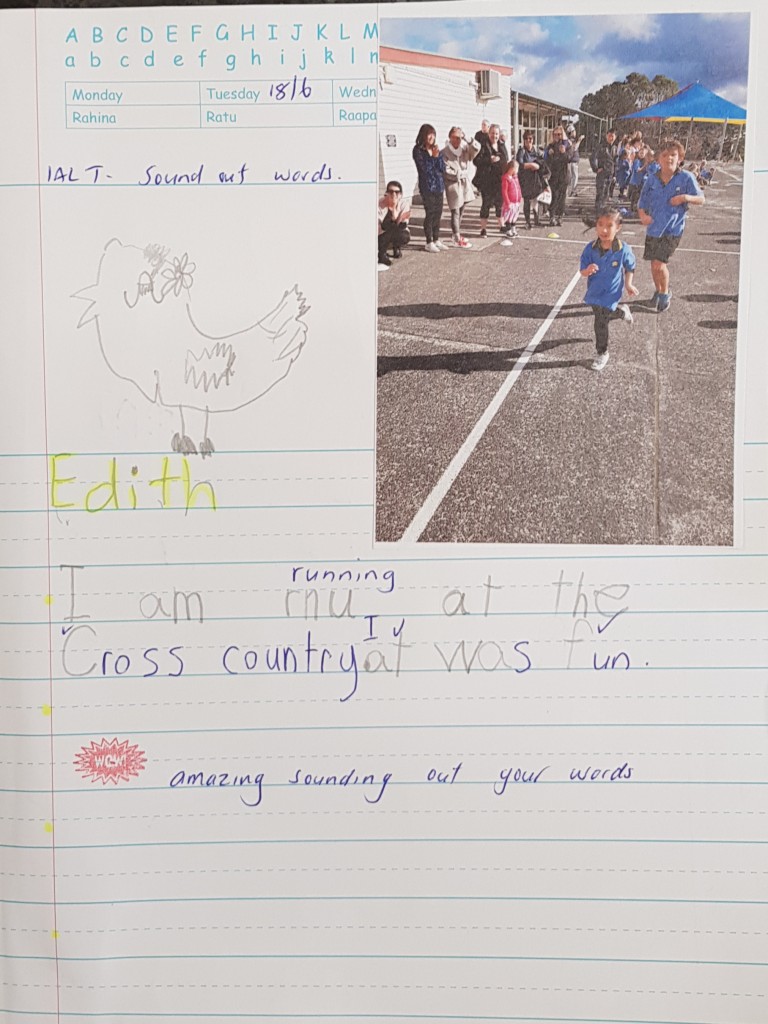 A B C D E F G H I J K L M
a b c d e f g h i j k l m
Monday Tuesday 18/6 Wedn
Rahina Ratu Raapa
IALT- Sound out words.
Edith
running
I am rnu at the
I
Cross country at was fun.
WOW!
amazing sounding out your words